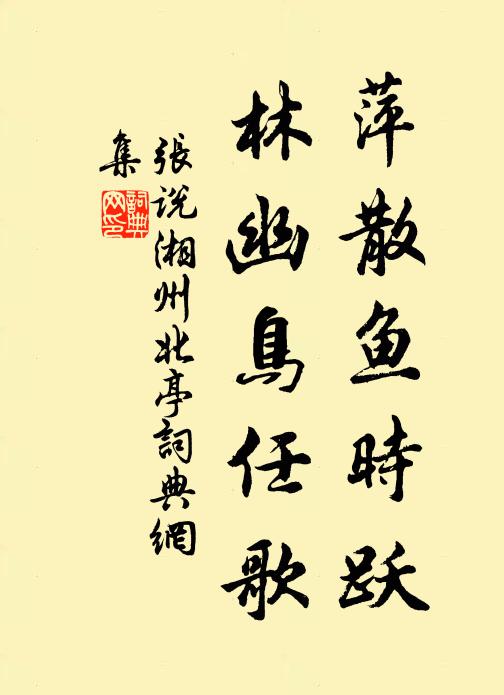 萍散魚時跃
林幽鳥任歌
張说湘州北亭詞典網
集
詞典網印